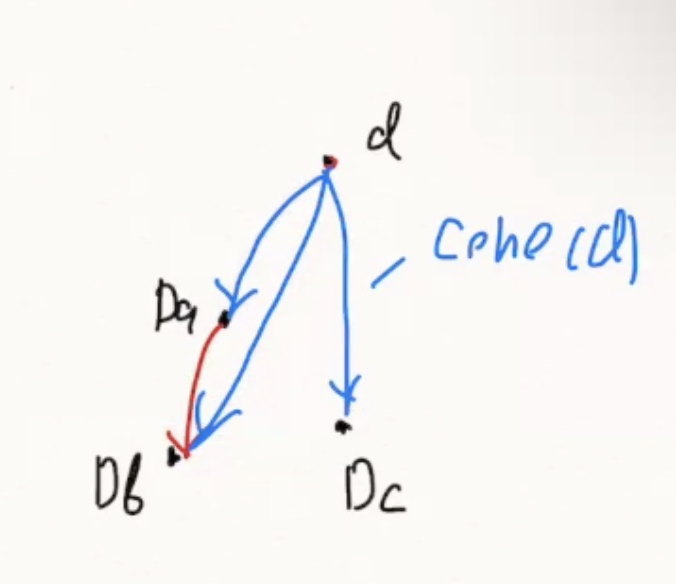 d
Cone (d)
Da
Db
Dc